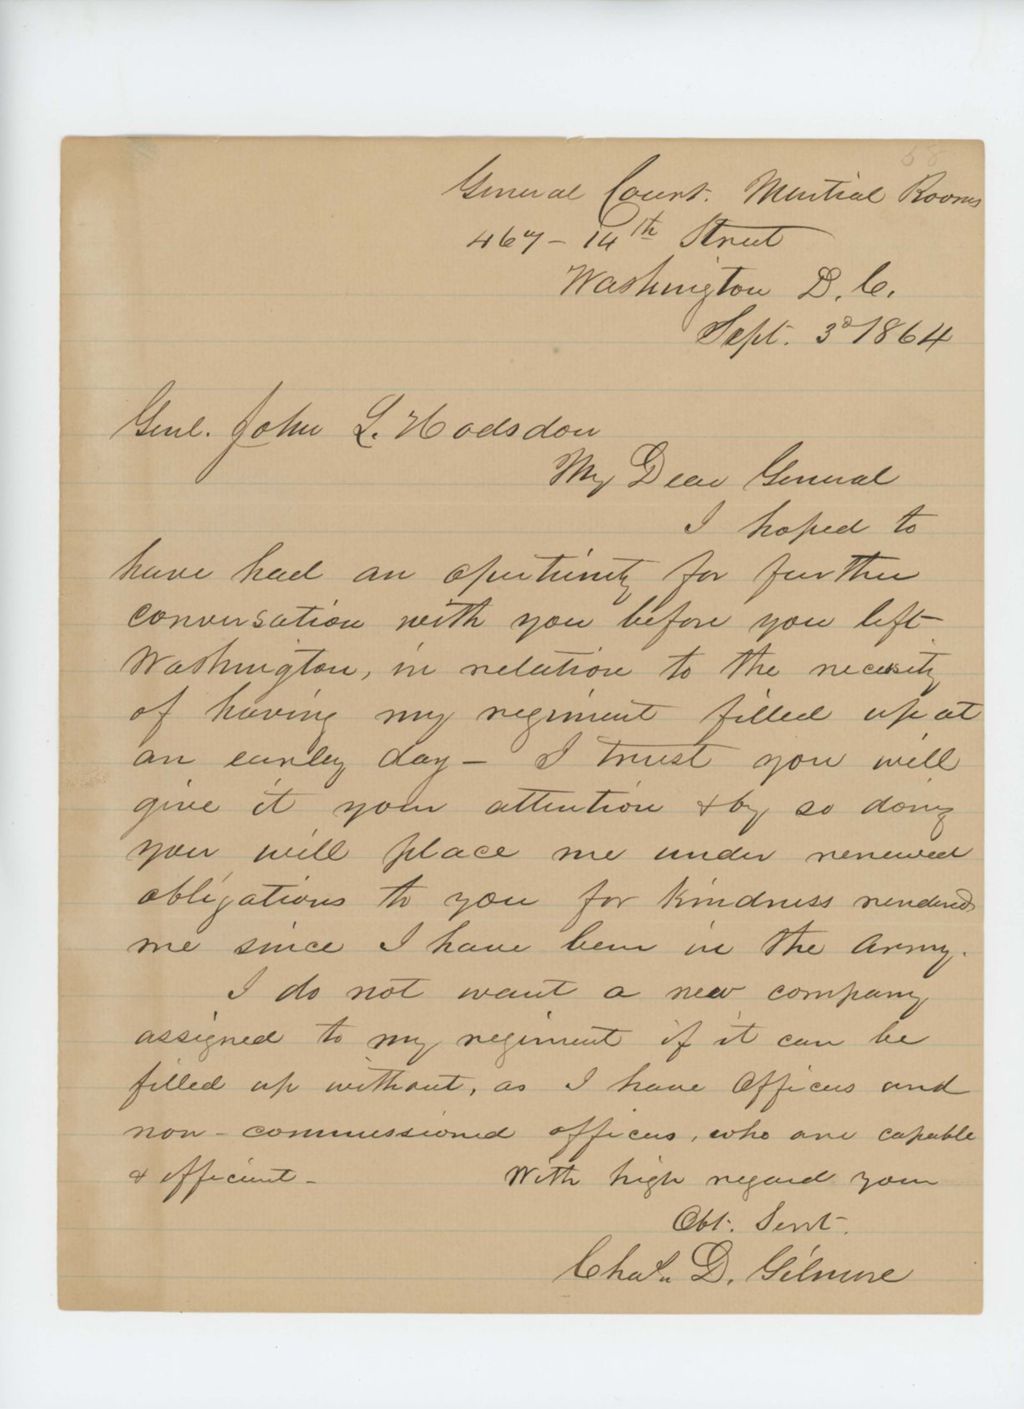 58
General Court. Martial Rooms
467 - 14th Street
Washington D. C.
Sept. 3d 1864
Genl. John L. Hodsdon
My Dear General
I hoped to
have had an opertunity for further
conversation with you before you left
Washington, in relation to the necessity
of having my regiment filled up at
an earley day - I trust you will
give it your attention & by so doing
you will place me under renewed
obligations to you for kindness rendered
me since I have been in the Army.
I do not want a new company
assigned to my regiment if it can be
filled up without, as I have Officers and
non-commissioned officers, who are capable
& efficient - With high regard your
Obt. Servt.
Chas. D. Gilmore